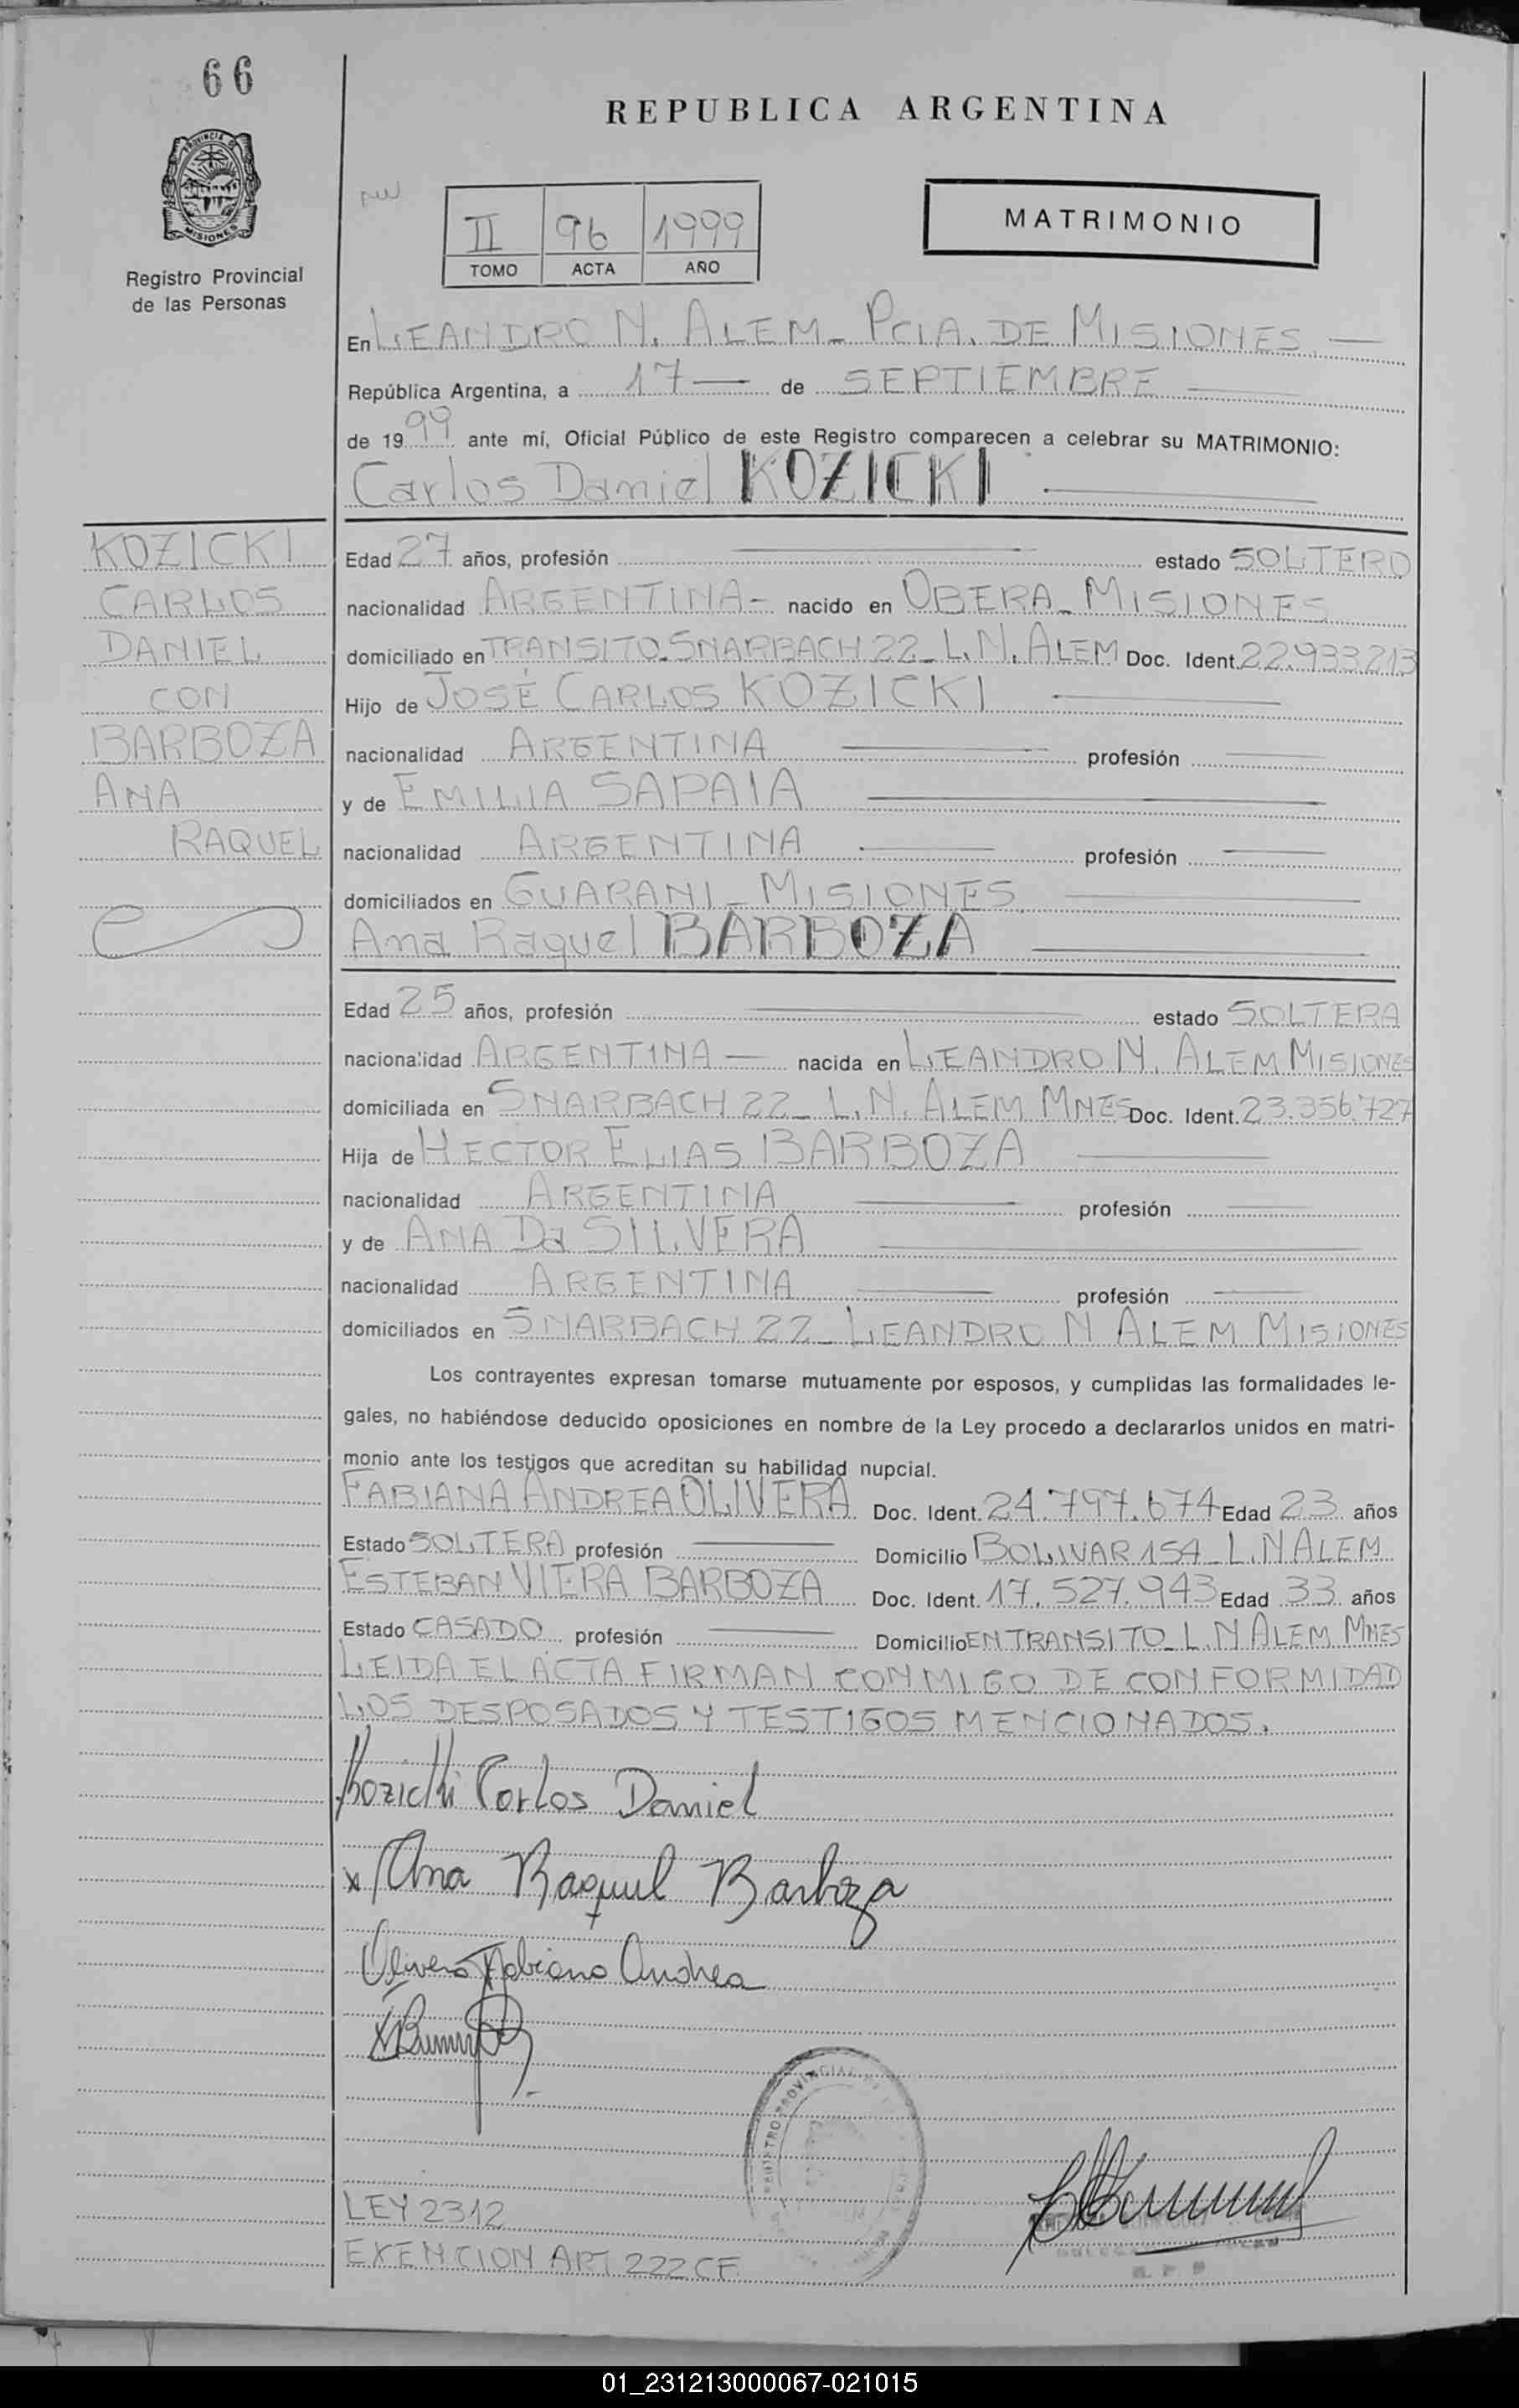 66
REPUBLICA ARGENTINA
PROVINCIA DE
MISIONES
Registro Provincial
de las Personas
II 96 1999
TOMO ACTA AÑO
MATRIMONIO
En LEANDRO N. ALEM - PCIA. DE MISIONES
República Argentina, a 17 de SEPTIEMBRE
de 1999 ante mí, Oficial Público de este Registro comparecen a celebrar su MATRIMONIO:
Carlos Daniel KOZICKI
KOZICKI
CARLOS
DANIEL
CON
BARBOZA
ANA
RAQUEL
Edad 27 años, profesión estado SOLTERO
nacionalidad ARGENTINA - nacido en OBERA - MISIONES
domiciliado en TRANSITO SNARBACH 22 - L.N. ALEM Doc. Ident. 22.933.213
Hijo de JOSÉ CARLOS KOZICKI
nacionalidad ARGENTINA profesión
y de EMILIA SAPAIA
nacionalidad ARGENTINA profesión
domiciliados en GUARANI - MISIONES
Ana Raquel BARBOZA
Edad 25 años, profesión estado SOLTERA
nacionalidad ARGENTINA nacida en LEANDRO N. ALEM MISIONES
domiciliada en SNARBACH 22 - L.N. ALEM MNES Doc. Ident. 23.356.727
Hija de HECTOR ELIAS BARBOZA
nacionalidad ARGENTINA profesión
y de ANA Da SILVERA
nacionalidad ARGENTINA profesión
domiciliados en SNARBACH 22 - LEANDRO N ALEM MISIONES
Los contrayentes expresan tomarse mutuamente por esposos, y cumplidas las formalidades le-
gales, no habiéndose deducido oposiciones en nombre de la Ley procedo a declararlos unidos en matri-
monio ante los testigos que acreditan su habilidad nupcial.
FABIANA ANDREA OLIVERA Doc. Ident. 24.797.674 Edad 23 años
Estado SOLTERA profesión Domicilio BOLIVAR 154 - L.N ALEM
ESTEBAN VIERA BARBOZA Doc. Ident. 17.527.943 Edad 33 años
Estado CASADO profesión Domicilio EN TRANSITO - L.N ALEM MNES
LEIDA EL ACTA FIRMAN CONMIGO DE CONFORMIDAD
LOS DESPOSADOS Y TESTIGOS MENCIONADOS.
Kozicki Carlos Daniel
x Ana Raquel Barboza
Olivera Fabiana Andrea
LEY 2312
EXENCION ART 222 CF
01_231213000067-021015